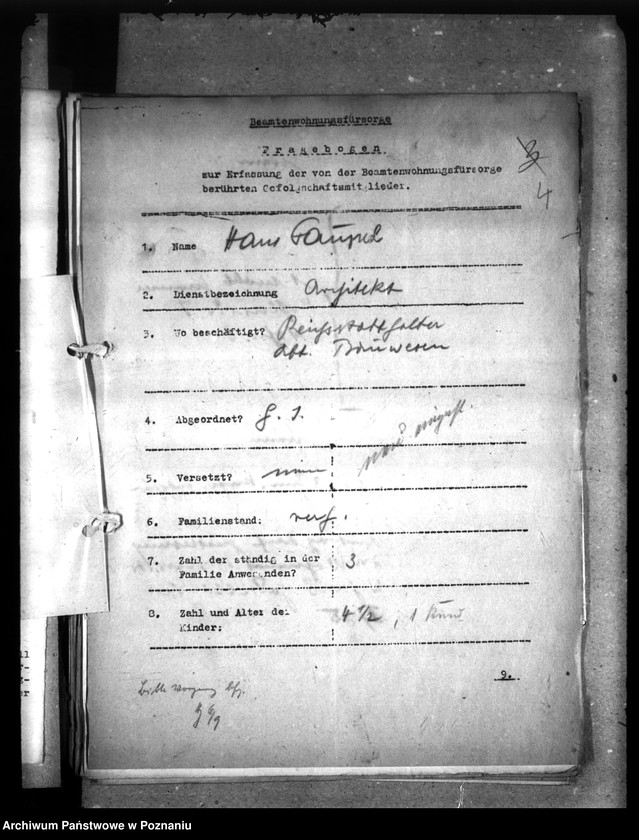 Beamtenwohnungsfürsorge
Fragebogen
zur Erfassung der von der Beamtenwohnungsfürsorge
berührten Gefolgschaftsmitglieder.
4
1. Name Hans
2. Dienstbezeichnung Architekt
3. Wo beschäftigt? Reichsstatthalter
Abt. Bauwesen
4. Abgeordnet?
5. Versetzt? nein
6. Familienstand: verh.
7. Zahl der ständig in der 3
Familie Anwesenden?
8. Zahl und Alter der 4 1/2, 1 Kind
Kinder:
9.
Archiwum Państwowe w Poznaniu